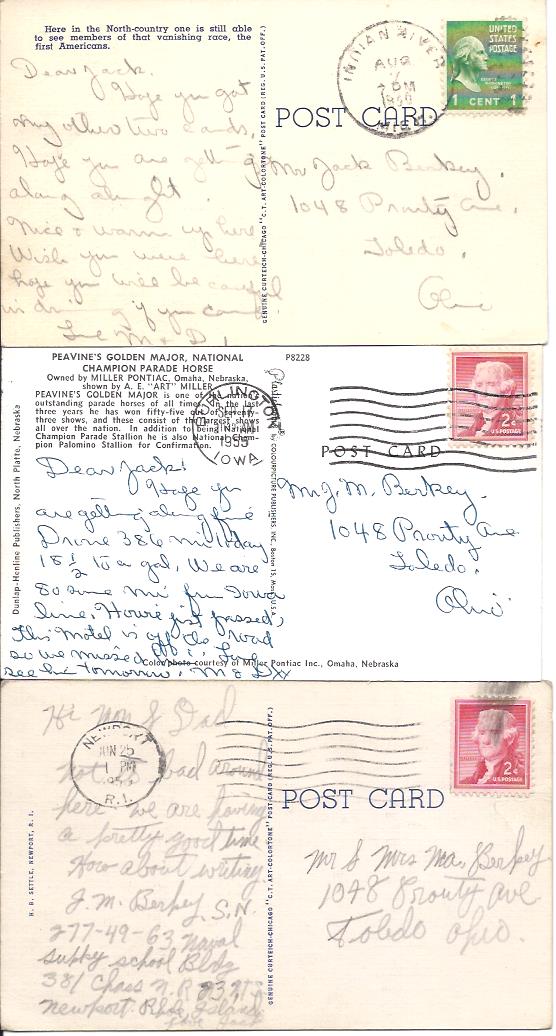 Here in the North-country one is still able
to see members of that vanishing race, the
first Americans.
Dear Jack.
Hope you got
my other two cards,
Hope you are getting
along alright.
Nice & warm up here
Wish you were here
hope you will be careful
in driving if you can
Love M & D,
GENUINE CURTEICH-CHICAGO "C.T. ART-COLORTONE" POST CARD (REG. U.S. PAT. OFF.)
POST CARD
INDIAN RIVER
AUG
7
PM
MICH.
UNITED
STATES
POSTAGE
GEORGE WASHINGTON
1 CENT 1
Mr Jack Berkey.
1048 Prouty Ave.
Toledo.
Ohio
PEAVINE'S GOLDEN MAJOR, NATIONAL
CHAMPION PARADE HORSE
Owned by MILLER PONTIAC, Omaha, Nebraska,
shown by A. E. "ART" MILLER
PEAVINE'S GOLDEN MAJOR is one of the nation's
outstanding parade horses of all times. In the last
three years he has won fifty-five out of seventy-
three shows, and these consist of the largest shows
all over the nation. In addition to being National
Champion Parade Stallion he is also National Cham-
pion Palomino Stallion for Confirmation.
P8228
Dunlap-Henline Publishers, North Platte, Nebraska
Plastichrome
by COLOURPICTURE PUBLISHERS INC., Boston 15, Mass., U.S.A.
1955
IOWA
POST CARD
2¢
U.S. POSTAGE
Dear Jack!
Hope you
are getting along fine
Drove 386 mi today
18 1/2 to a gal, We are
80 some mi from Iowa
line, Howie just passed,
This Motel is off the road
so we missed
see him tomorrow. M & D XX
Mr J. M. Berkey.
1048 Prouty Ave
Toledo.
Ohio
Color photo courtesy of Miller Pontiac Inc., Omaha, Nebraska
Hi Mom & Dad
Not bad around
here we are having
a pretty good time
How about writing
J. M. Berkey S.N.
277-49-63 Naval
supply school Bldg
381 Chass N.R.
Newport Rhode Island
Love Jack
NEWPORT
JUN 25
1 PM
R.I.
H. B. SETTLE, NEWPORT, R. I.
GENUINE CURTEICH-CHICAGO "C.T. ART-COLORTONE" POST CARD (REG. U.S. PAT. OFF.)
POST CARD
2¢
U.S. POSTAGE
Mr & Mrs Ma. Berkey
1048 Prouty Ave
Toledo Ohio.